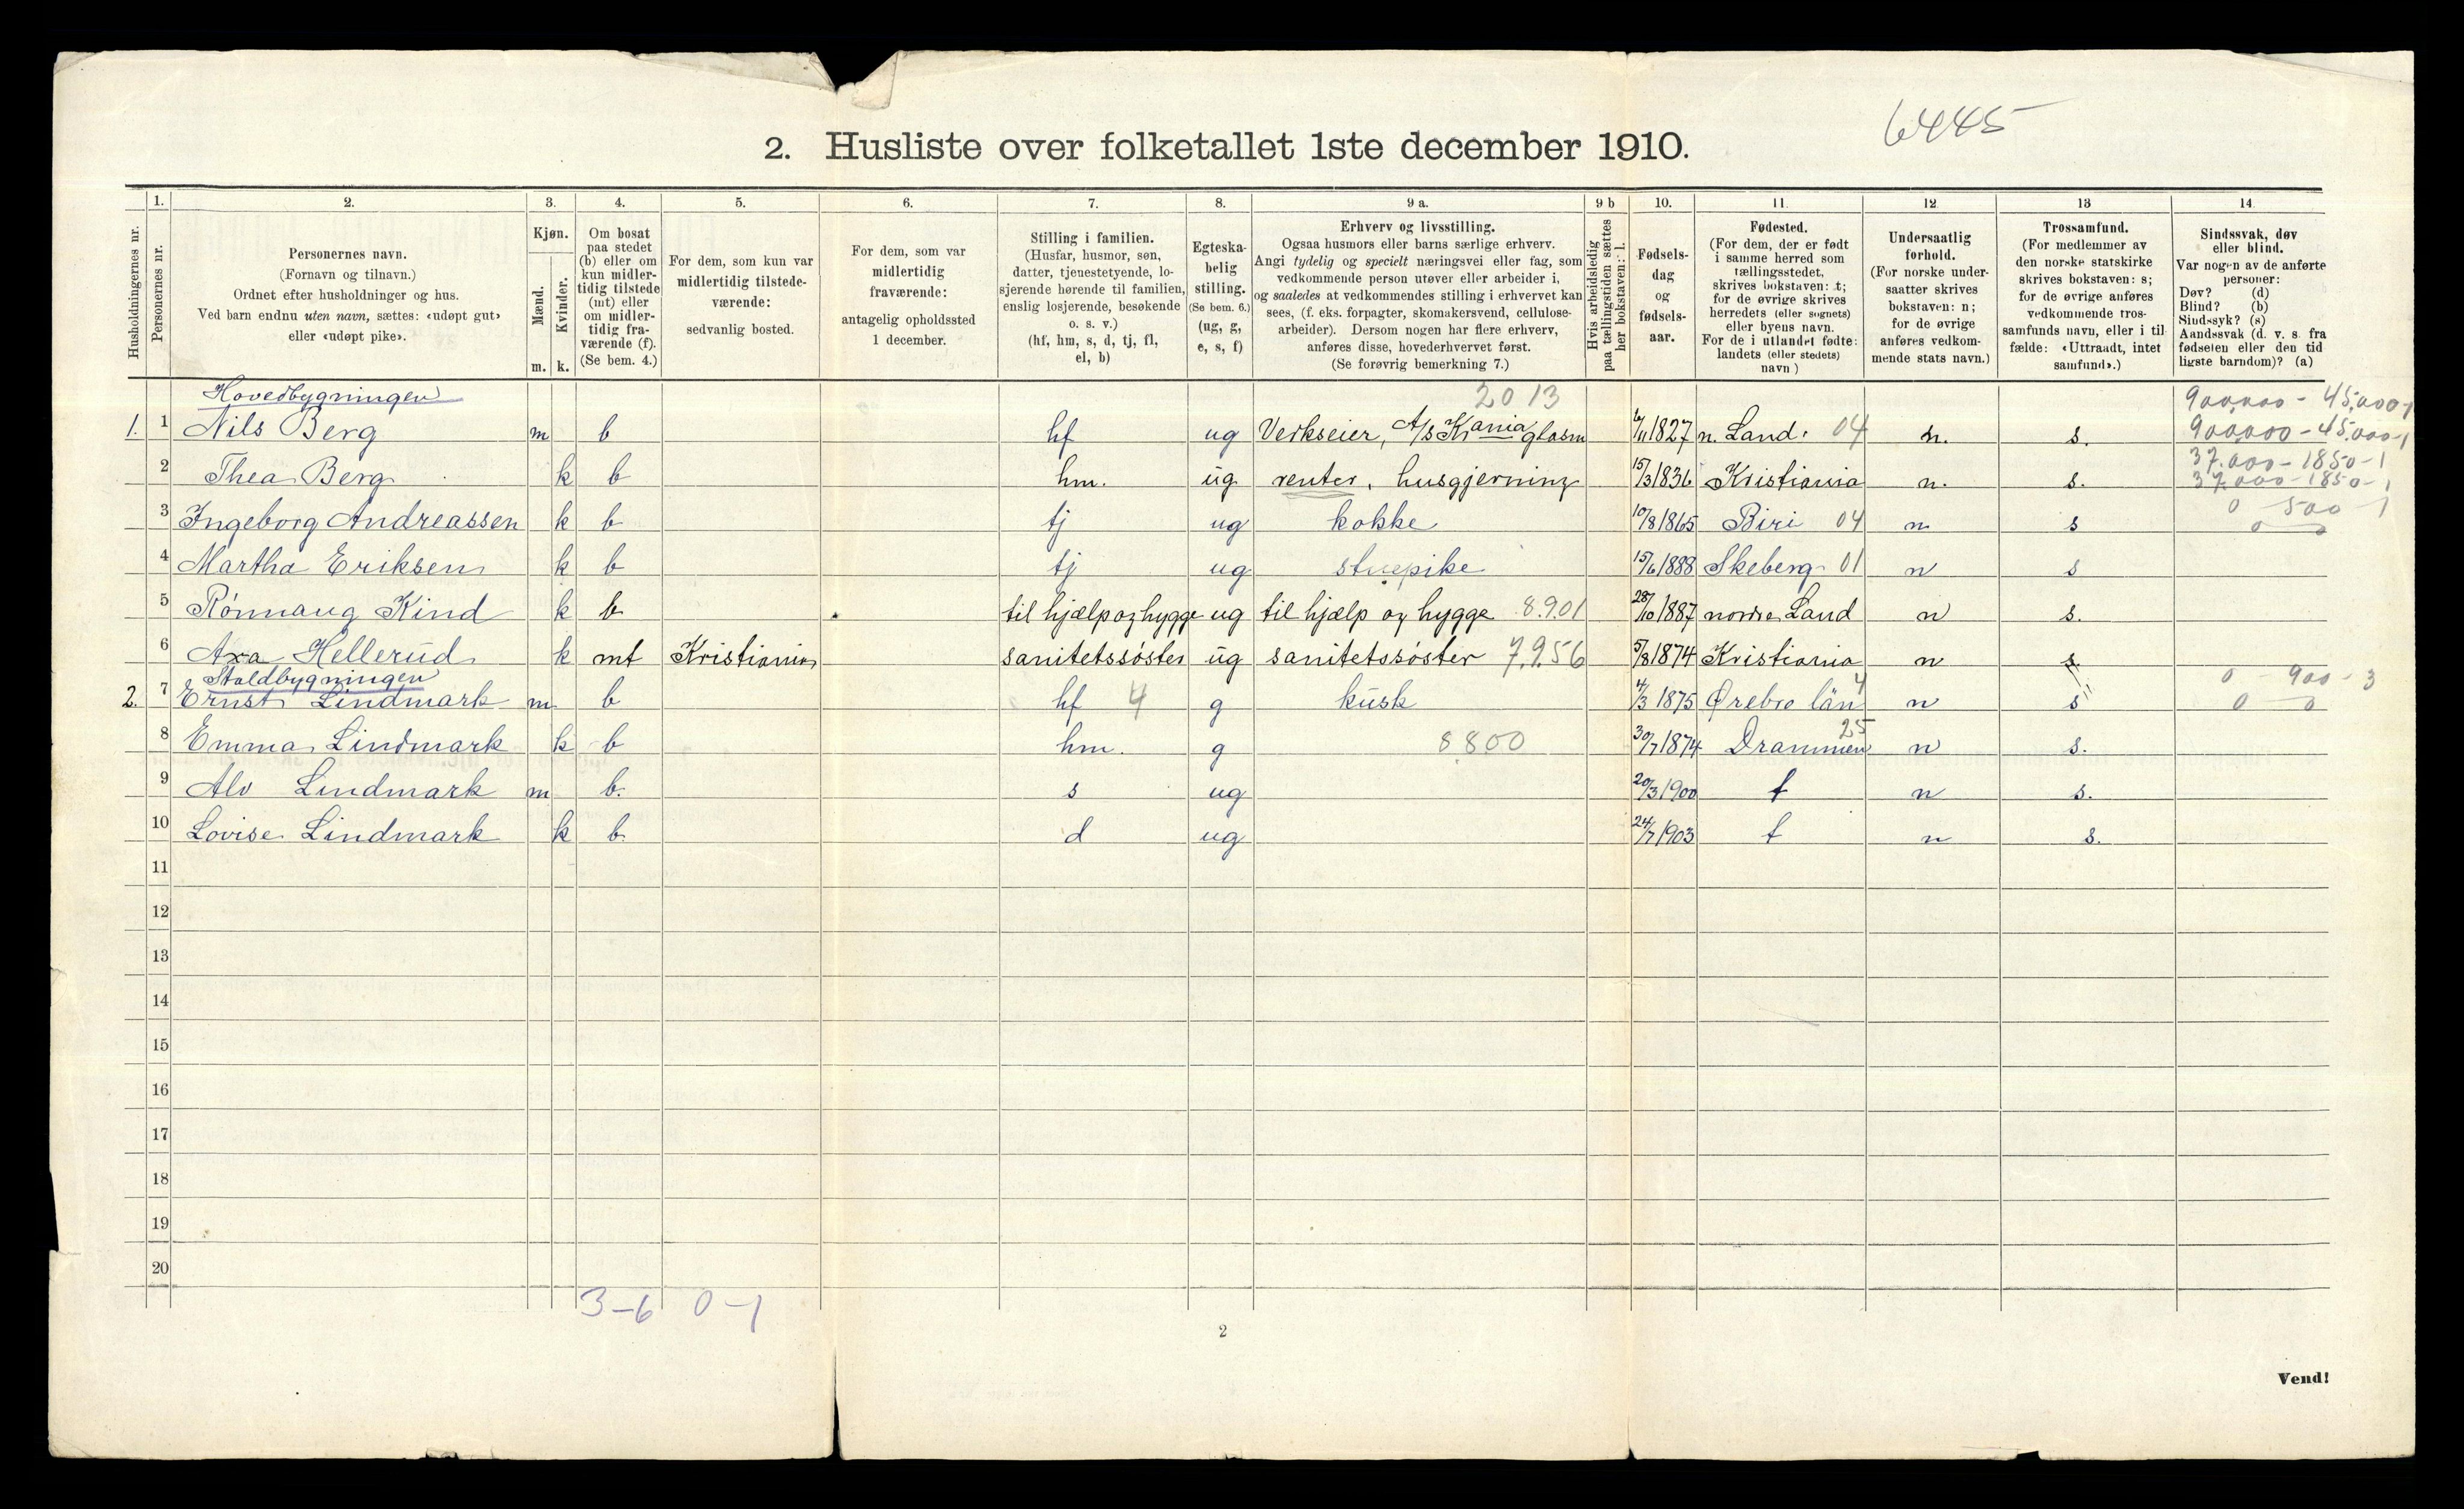 6445
2. Husliste over folketallet 1ste december 1910.
Husholdningernes nr.
1.
Personernes nr.
2.
Personernes navn.
(Fornavn og tilnavn.)
Ordnet efter husholdninger og hus.
Ved barn endnu uten navn, sættes: «udøpt gut»
eller «udøpt pike».
3.
Kjøn.
Mænd. Kvinder.
m. k.
4.
Om bosat
paa stedet
(b) eller om
kun midler-
tidig tilstede
(mt) eller
om midler-
tidig fra-
værende (f).
(Se bem. 4.)
5.
For dem, som kun var
midlertidig tilstede-
værende:
sedvanlig bosted.
6.
For dem, som var
midlertidig
fraværende:
antagelig opholdssted
1 december.
7.
Stilling i familien.
(Husfar, husmor, søn,
datter, tjenestetyende, lo-
sjerende hørende til familien,
enslig losjerende, besøkende
o. s. v.)
(hf, hm, s, d, tj, fl,
el, b)
8.
Egteska-
belig
stilling.
(Se bem. 6.)
(ug, g,
e, s, f)
9 a.
Erhverv og livsstilling.
Ogsaa husmors eller barns særlige erhverv.
Angi tydelig og specielt næringsvei eller fag, som
vedkommende person utøver eller arbeider i,
og saaledes at vedkommendes stilling i erhvervet kan
sees, (f. eks. forpagter, skomakersvend, cellulose-
arbeider). Dersom nogen har flere erhverv,
anføres disse, hovederhvervet først.
(Se forøvrig bemerkning 7.)
9 b
Hvis arbeidsledig
paa tællingstiden sættes
her bokstaven: l.
10.
Fødsels-
dag
og
fødsels-
aar.
11.
Fødested.
(For dem, der er født
i samme herred som
tællingsstedet,
skrives bokstaven: t;
for de øvrige skrives
herredets (eller sognets)
eller byens navn.
For de i utlandet fødte:
landets (eller stedets)
navn)
12.
Undersaatlig
forhold.
(For norske under-
saatter skrives
bokstaven: n;
for de øvrige
anføres vedkom-
mende stats navn.)
13
Trossamfund.
(For medlemmer av
den norske statskirke
skrives bokstaven: s;
for de øvrige anføres
vedkommende tros-
samfunds navn, eller i til
fælde: «Uttraadt, intet
samfund».)
14
Sindssvak, døv
eller blind.
Var nogen av de anførte
personer:
Døv? (d)
Blind? (b)
Sindssyk? (s)
Aandssvak (d. v. s. fra
fødselen eller den tid
ligste barndom)? (a)
Hovedbygningen 2013 900,000 - 45,000-1
1. 1 Nils Berg m b hf ug Verkseier, A/s Kr.ania glasm 6/11 1827 n. Land. 04 n. s. 900,000 - 45,000-1
37.000 - 1850 - 1
2 Thea Berg k b hm. ug renter, husgjerning 15/3 1836 Kristiania n. s. 37,000 - 1850 - 1
0 500 - 1
3 Ingeborg Andreassen k b tj ug kokke 10/8 1865 Biri 04 n s 0 - 0
4 Martha Eriksen k b tj ug stuepike 15/6 1888 Skeberg 01 n s
5 Rønnaug Kind k b til hjælp og hygge ug til hjælp og hygge 8.9.01 28/10 1887 nordre Land n s.
6 Axa Hellerud k mt Kristiania sanitetssøster ug sanitetssøster 7.9.56 5/8 1874 Kristiania n s
Staldbygningen 4 0 - 900 - 3
2. 7 Ernst Lindmark m b hf 4 g kusk 4/3 1875 Ørebro län n s 0 - 0
25
8 Emma Lindmark k b hm. g 8.800 30/7 1874 Drammen n s.
9 Alv Lindmark m b. s ug 20/3 1900 t n s.
10 Lovise Lindmark k b. d ug 24/7 1903 t n s.
11
12
13
14
15
16
17
18
19
20
3-6 0-1
2
Vend!